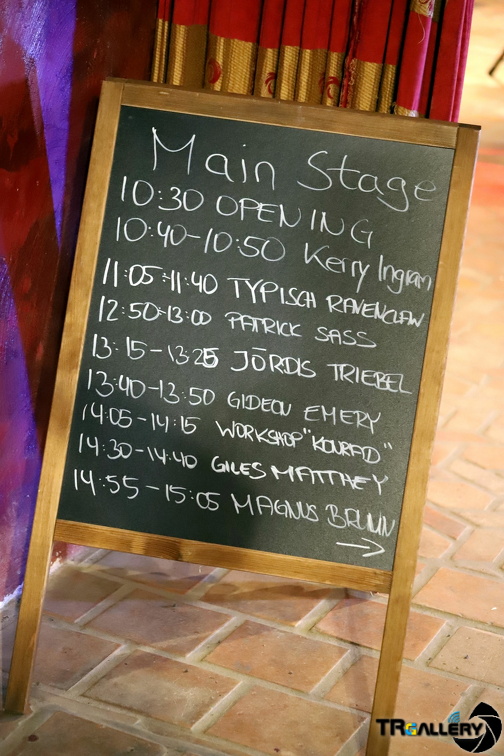 Main Stage
10:30 OPENING
10:40-10:50 Kerry Ingram
11:05-11:40 TYPISCH RAVENCLAW
12:50-13:00 PATRICK SASS
13:15-13:25 JÖRDIS TRIEBEL
13:40-13:50 GIDEON EMERY
14:05-14:15 WORKSHOP "KOURFD"
14:30-14:40 GILES MATTHEY
14:55-15:05 MAGNUS BRUUN
→
TRGALLERY